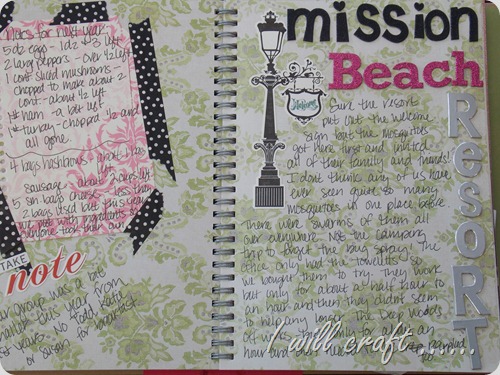 Notes for next year:
5 dz eggs - 1 dz + 3 left
2 lang peppers - over 1/2 left
1 cont sliced mushrooms -
chopped to make about 2
cont - about 1/2 left
1# ham - a bit left
1# turkey - chopped 1/2 and
all gone
4 bags hashbrowns - about 1 bag
left
sausage about 2 cups left
5 bags cheese - less than
2 bags used but this year
we not with ingredients &
everyone took their own
TAKE
note
our group was a bit
smaller this year from
last years. No Todd, Katia
or Susan for breakfast.
mission
Beach
ResoRT
Welcome
Sure the resort
put out the welcome
sign but the mosquitoes
got here first and invited
all of their family and friends!
I dont think any of us have
ever seen quite so many
mosquitoes in one place before.
There were swarms of them all
over everywhere. Not the camping
trip to forget the bug spray! The
office only had the towelettes so
we bought them to try. They work
but only for about a half hour to
an hour and then they didnt seem
to help any longer. The Deep Woods
off works but only for about an
hour and
I will craft .....